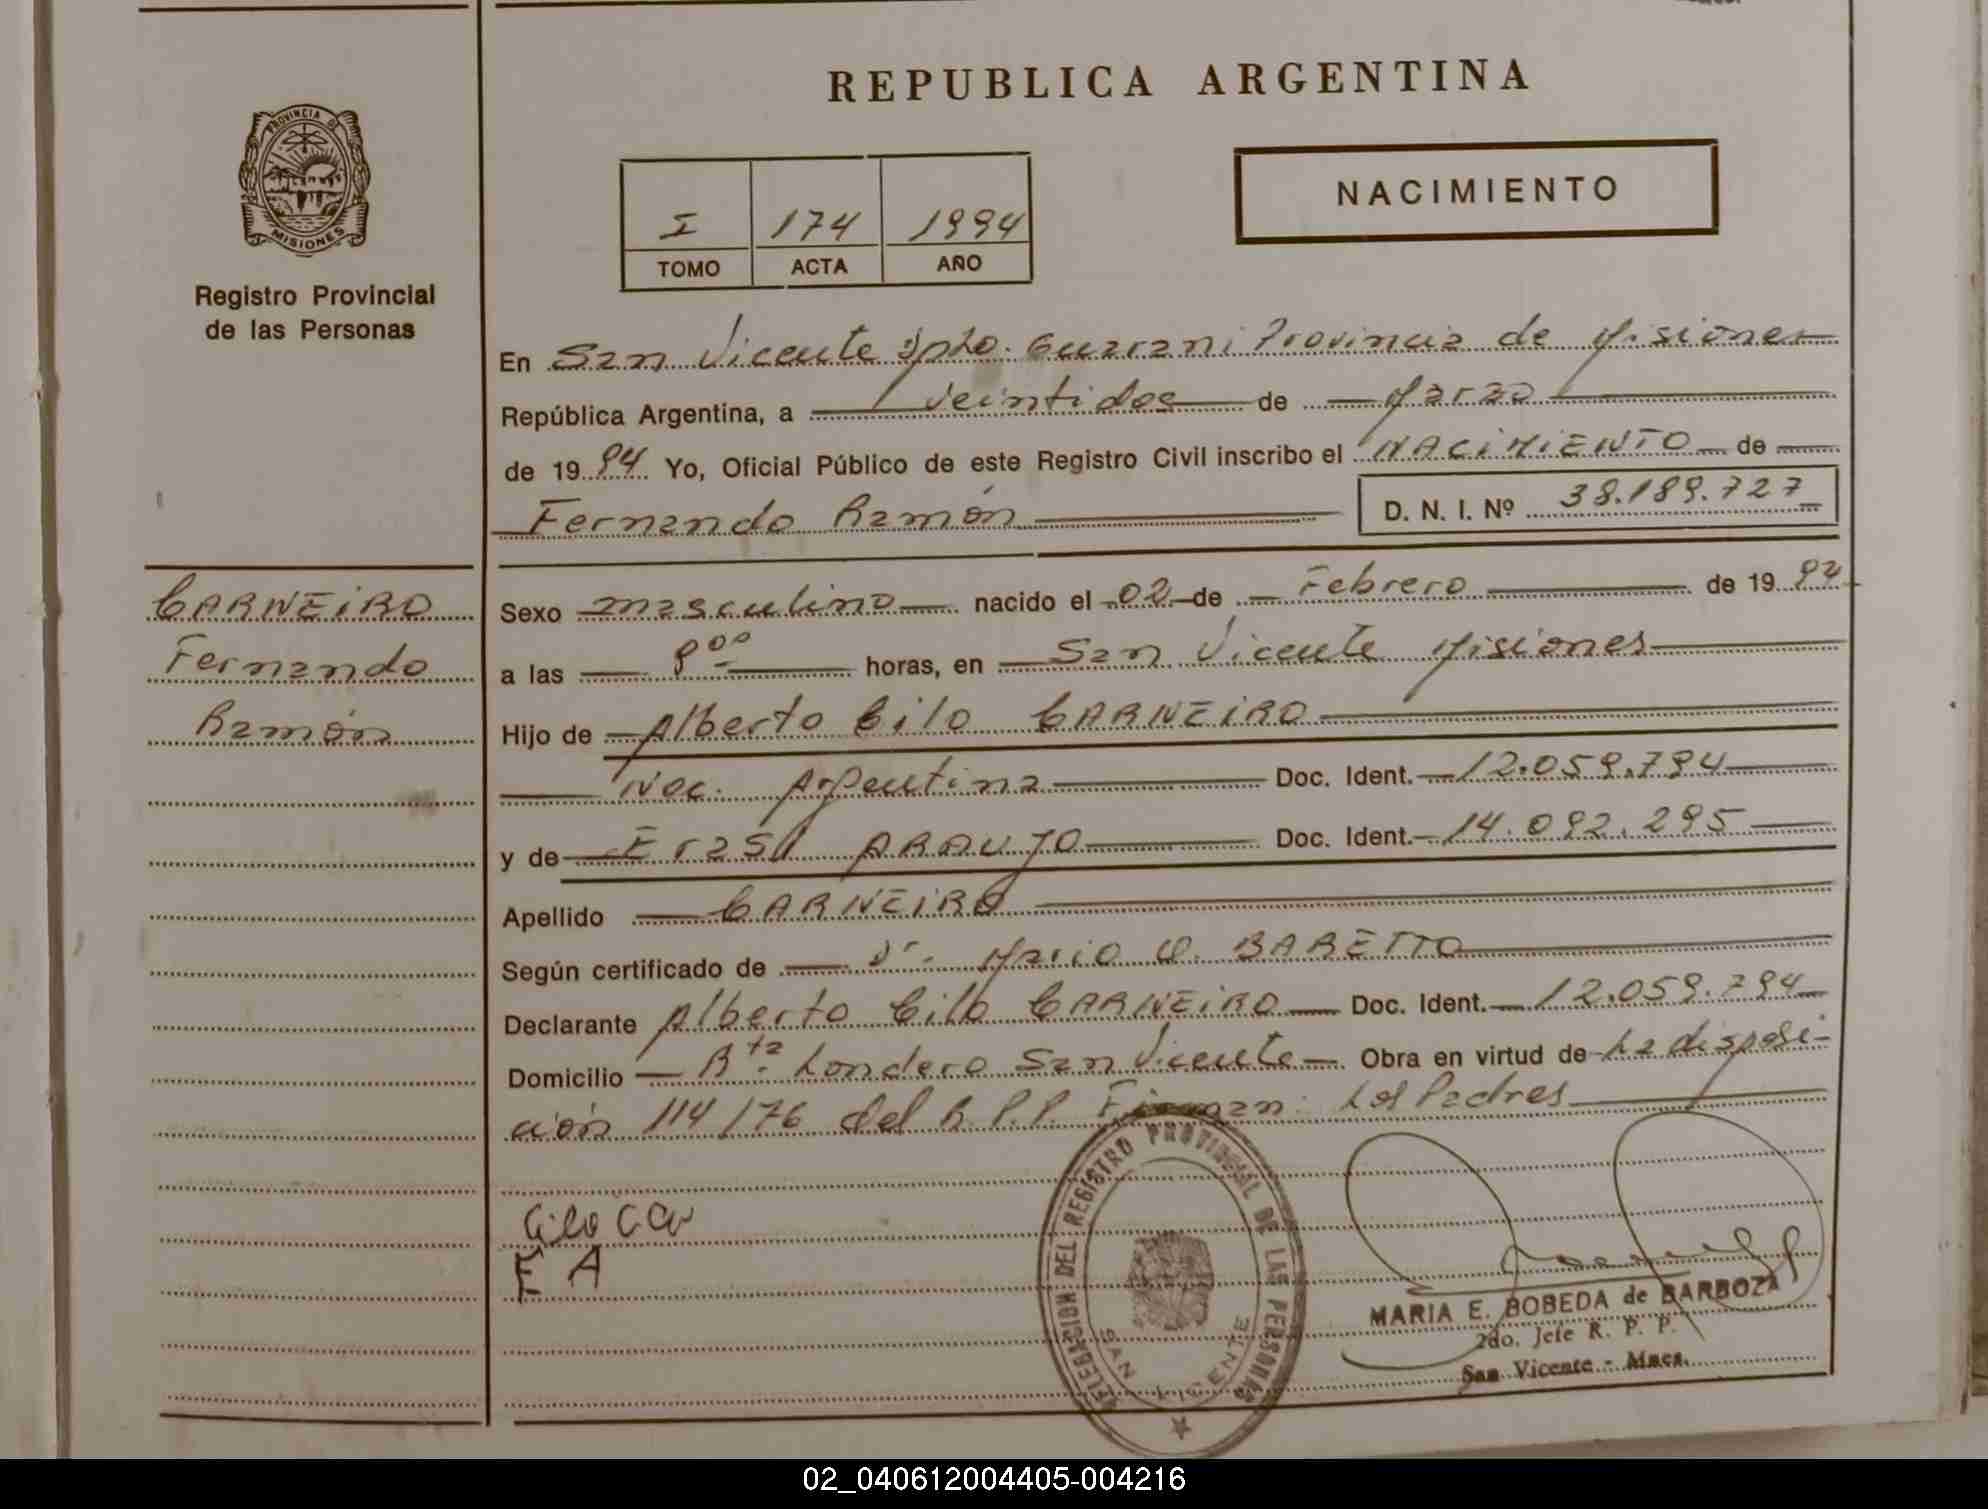 REPUBLICA ARGENTINA
PROVINCIA DE
MISIONES
Registro Provincial
de las Personas
NACIMIENTO
I 174 1994
TOMO ACTA AÑO
En San Vicente Dpto. Guarani Provincia de Misiones
República Argentina, a veintidos de Marzo
de 1994 Yo, Oficial Público de este Registro Civil inscribo el NACIMIENTO de
Fernando Ramón D. N. I. Nº 38.189.727
CARNEIRO
Fernando
Ramón
Sexo masculino nacido el 02 de Febrero de 1994
a las 8⁰⁰ horas, en San Vicente Misiones
Hijo de Alberto Cilo CARNEIRO
Nac. Argentina Doc. Ident. 12.059.794
y de ARAUJO Doc. Ident. 14.092.295
Apellido CARNEIRO
Según certificado de Dr. Mario O. BARETTO
Declarante Alberto Cilo CARNEIRO Doc. Ident. 12.059.794
Domicilio Bta. Londero San Vicente Obra en virtud de La disposi-
ción 114/76 del R.P.P. Firman: Los Padres
Cilo
E A
DELEGACION DEL REGISTRO PROVINCIAL DE LAS PERSONAS
SAN VICENTE
MARIA E. BOBEDA de BARBOZA
2do. Jefe R. P. P.
San Vicente - Mnes.
02_040612004405-004216